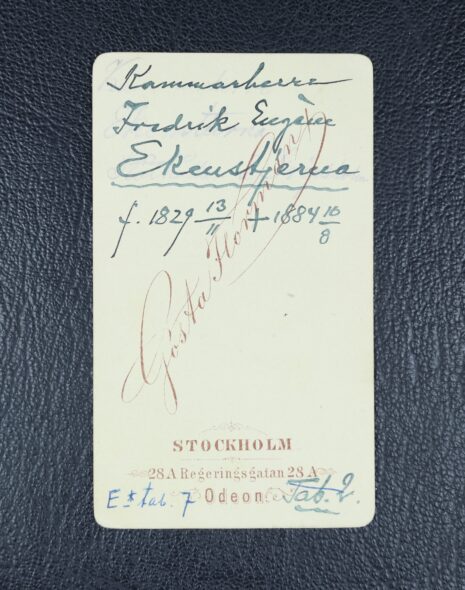 Kammarherre
Fredrik Eugène
Ekenstjerna
f. 1829 13/11 † 1884 16/8
Gösta Florman
STOCKHOLM
28A Regeringsgatan 28A
Odeon.
E* tab. 7
Tab. 2.